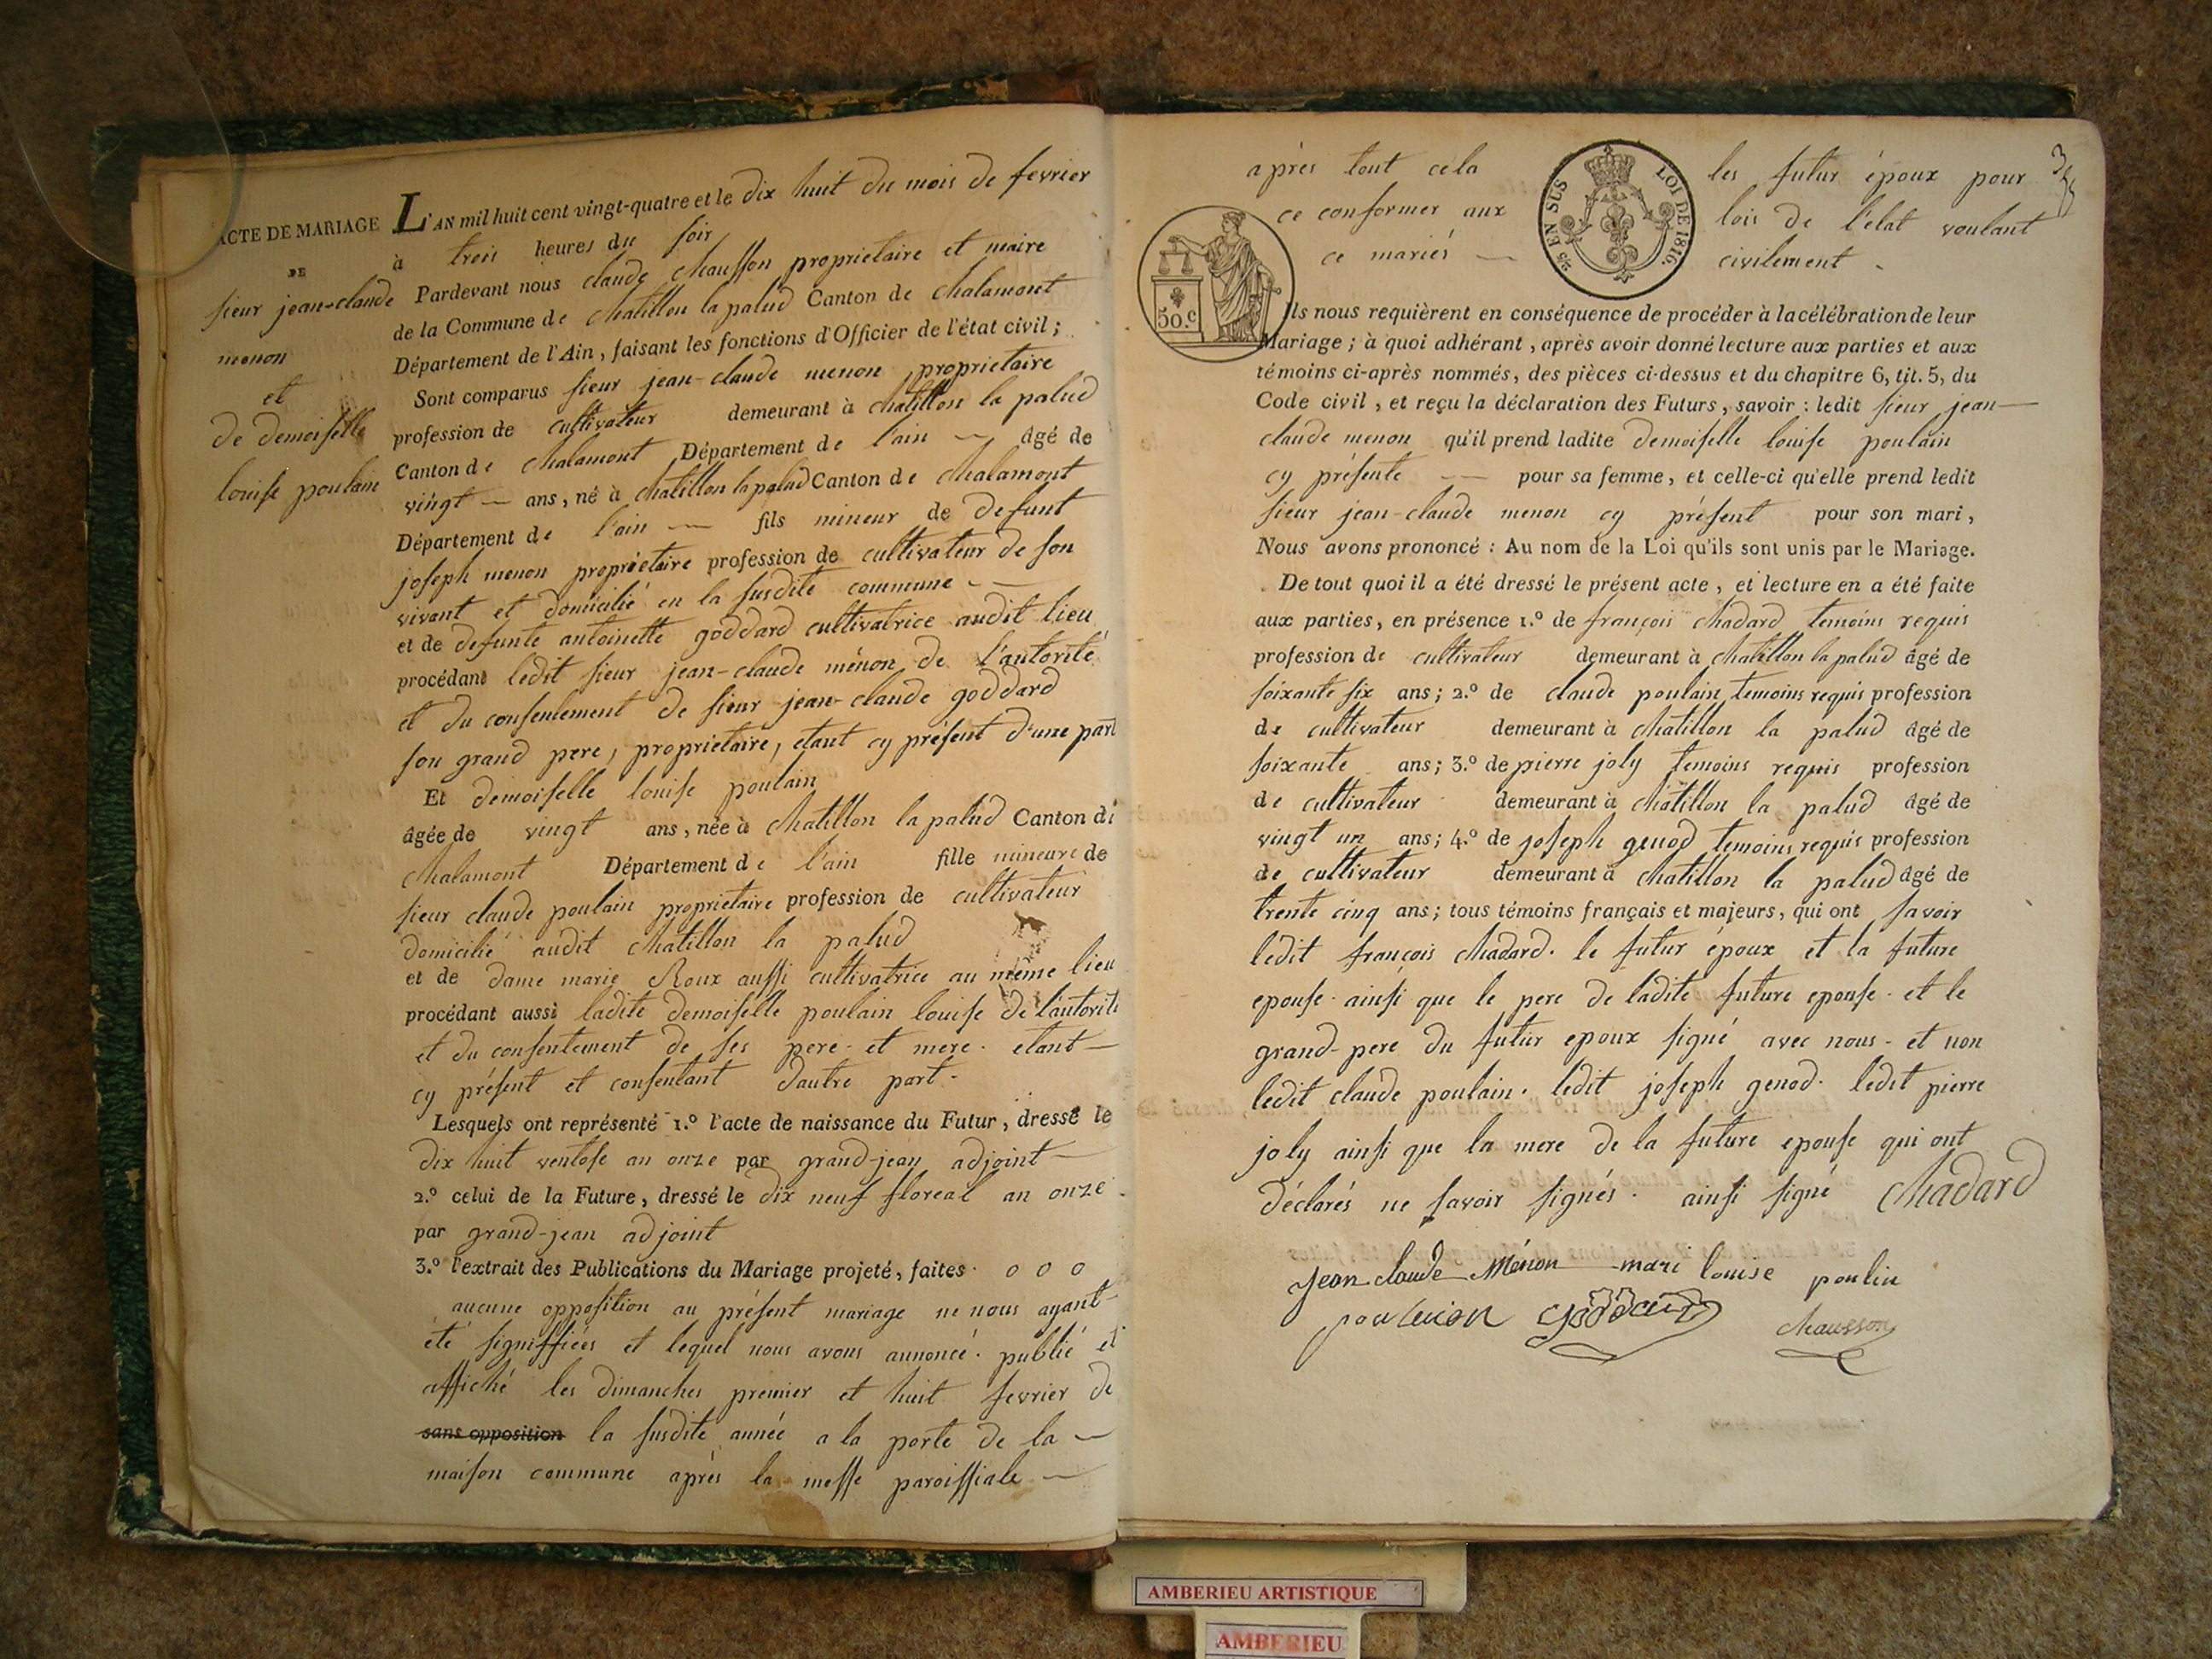 ACTE DE MARIAGE
DE
sieur jean-claude
menon
et
de demoiselle
louise poulain
L'AN mil huit cent vingt-quatre et le dix huit du mois de fevrier
à trois heures du soir
Pardevant nous claude chausson proprietaire et maire
de la Commune de chatillon la palud Canton de chalamont
Département de l'Ain, faisant les fonctions d'Officier de l'état civil;
Sont comparus sieur jean-claude menon proprietaire
profession de cultivateur demeurant à chatillon la palud
Canton de chalamont Département de l'ain âgé de
vingt ans, né à chatillon la palud Canton de chalamont
Département de l'ain fils mineur de defunt
joseph menon propriétaire profession de cultivateur de son
vivant et domicilié en la susdite commune
et de defunte antoinette goddard cultivatrice audit lieu
procédant ledit sieur jean-claude ménon de l'autorité
et du consentement de sieur jean-claude goddard
son grand pere, proprietaire, etant cy présent d'une part
Et demoiselle louise poulain
âgée de vingt ans, née à chatillon la palud Canton de
chalamont Département de l'ain fille mineure de
sieur claude poulain proprietaire profession de cultivateur
domicilié audit chatillon la palud
et de dame marie Roux aussi cultivatrice au même lieu
procédant aussi ladite demoiselle poulain louise de l'autorité
et du consentement de ses pere et mere. etant
cy présent et consentant dautre part.
Lesquels ont représenté 1.º l'acte de naissance du Futur, dressé le
dix huit ventose an onze par grand-jean adjoint
2.º celui de la Future, dressé le dix neuf floreal an onze
par grand-jean adjoint
3.º l'extrait des Publications du Mariage projeté, faites. o o o
aucune opposition au présent mariage ne nous ayant
été signiffiées et lequel nous avons annoncé. publié et
affiché les dimanches premier et huit fevrier de
sans opposition la susdite année a la porte de la
maison commune après la messe paroissiale
après tout cela les futur époux pour
ce conformer aux lois de l'état voulant
ce mariés civilement.
EN SUS LOI DE 1816.
50.c
Ils nous requièrent en conséquence de procéder à la célébration de leur
Mariage; à quoi adhérant, après avoir donné lecture aux parties et aux
témoins ci-après nommés, des pièces ci-dessus et du chapitre 6, tit. 5, du
Code civil, et reçu la déclaration des Futurs, savoir: ledit sieur jean-
claude menon qu'il prend ladite demoiselle louise poulain
cy présente pour sa femme, et celle-ci qu'elle prend ledit
sieur jean-claude menon cy présent pour son mari,
Nous avons prononcé: Au nom de la Loi qu'ils sont unis par le Mariage.
De tout quoi il a été dressé le présent acte, et lecture en a été faite
aux parties, en présence 1.º de françois chadard temoins requis
profession de cultivateur demeurant à chatillon la palud âgé de
soixante six ans; 2.º de claude poulain temoins requis profession
de cultivateur demeurant à chatillon la palud âgé de
soixante ans; 3.º de pierre joly temoins requis profession
de cultivateur demeurant à chatillon la palud âgé de
vingt un ans; 4.º de joseph genod temoins requis profession
de cultivateur demeurant à chatillon la palud âgé de
trente cinq ans; tous témoins français et majeurs, qui ont savoir
ledit françois chadard. le futur époux et la future
epouse. ainsi que le pere de ladite future epouse. et le
grand-pere du futur epoux signé avec nous. et non
ledit claude poulain. ledit joseph genod. ledit pierre
joly ainsi que la mere de la future epouse qui ont
déclarés ne savoir signés. ainsi signé chadard
Jean claude Ménon mari louise poulin
chausson
AMBERIEU ARTISTIQUE
AMBERIEU